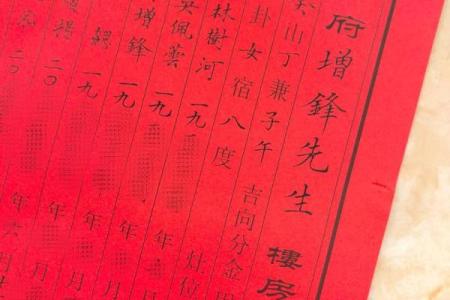 府增鋒先生 樓房
山丁兼子午 吉向分金
卦女宿八度 灶位
林樹河 一九
吳佩雲 一九 年 月
增鋒 一九 年 月
一九 年 月
二〇 年六月
二〇